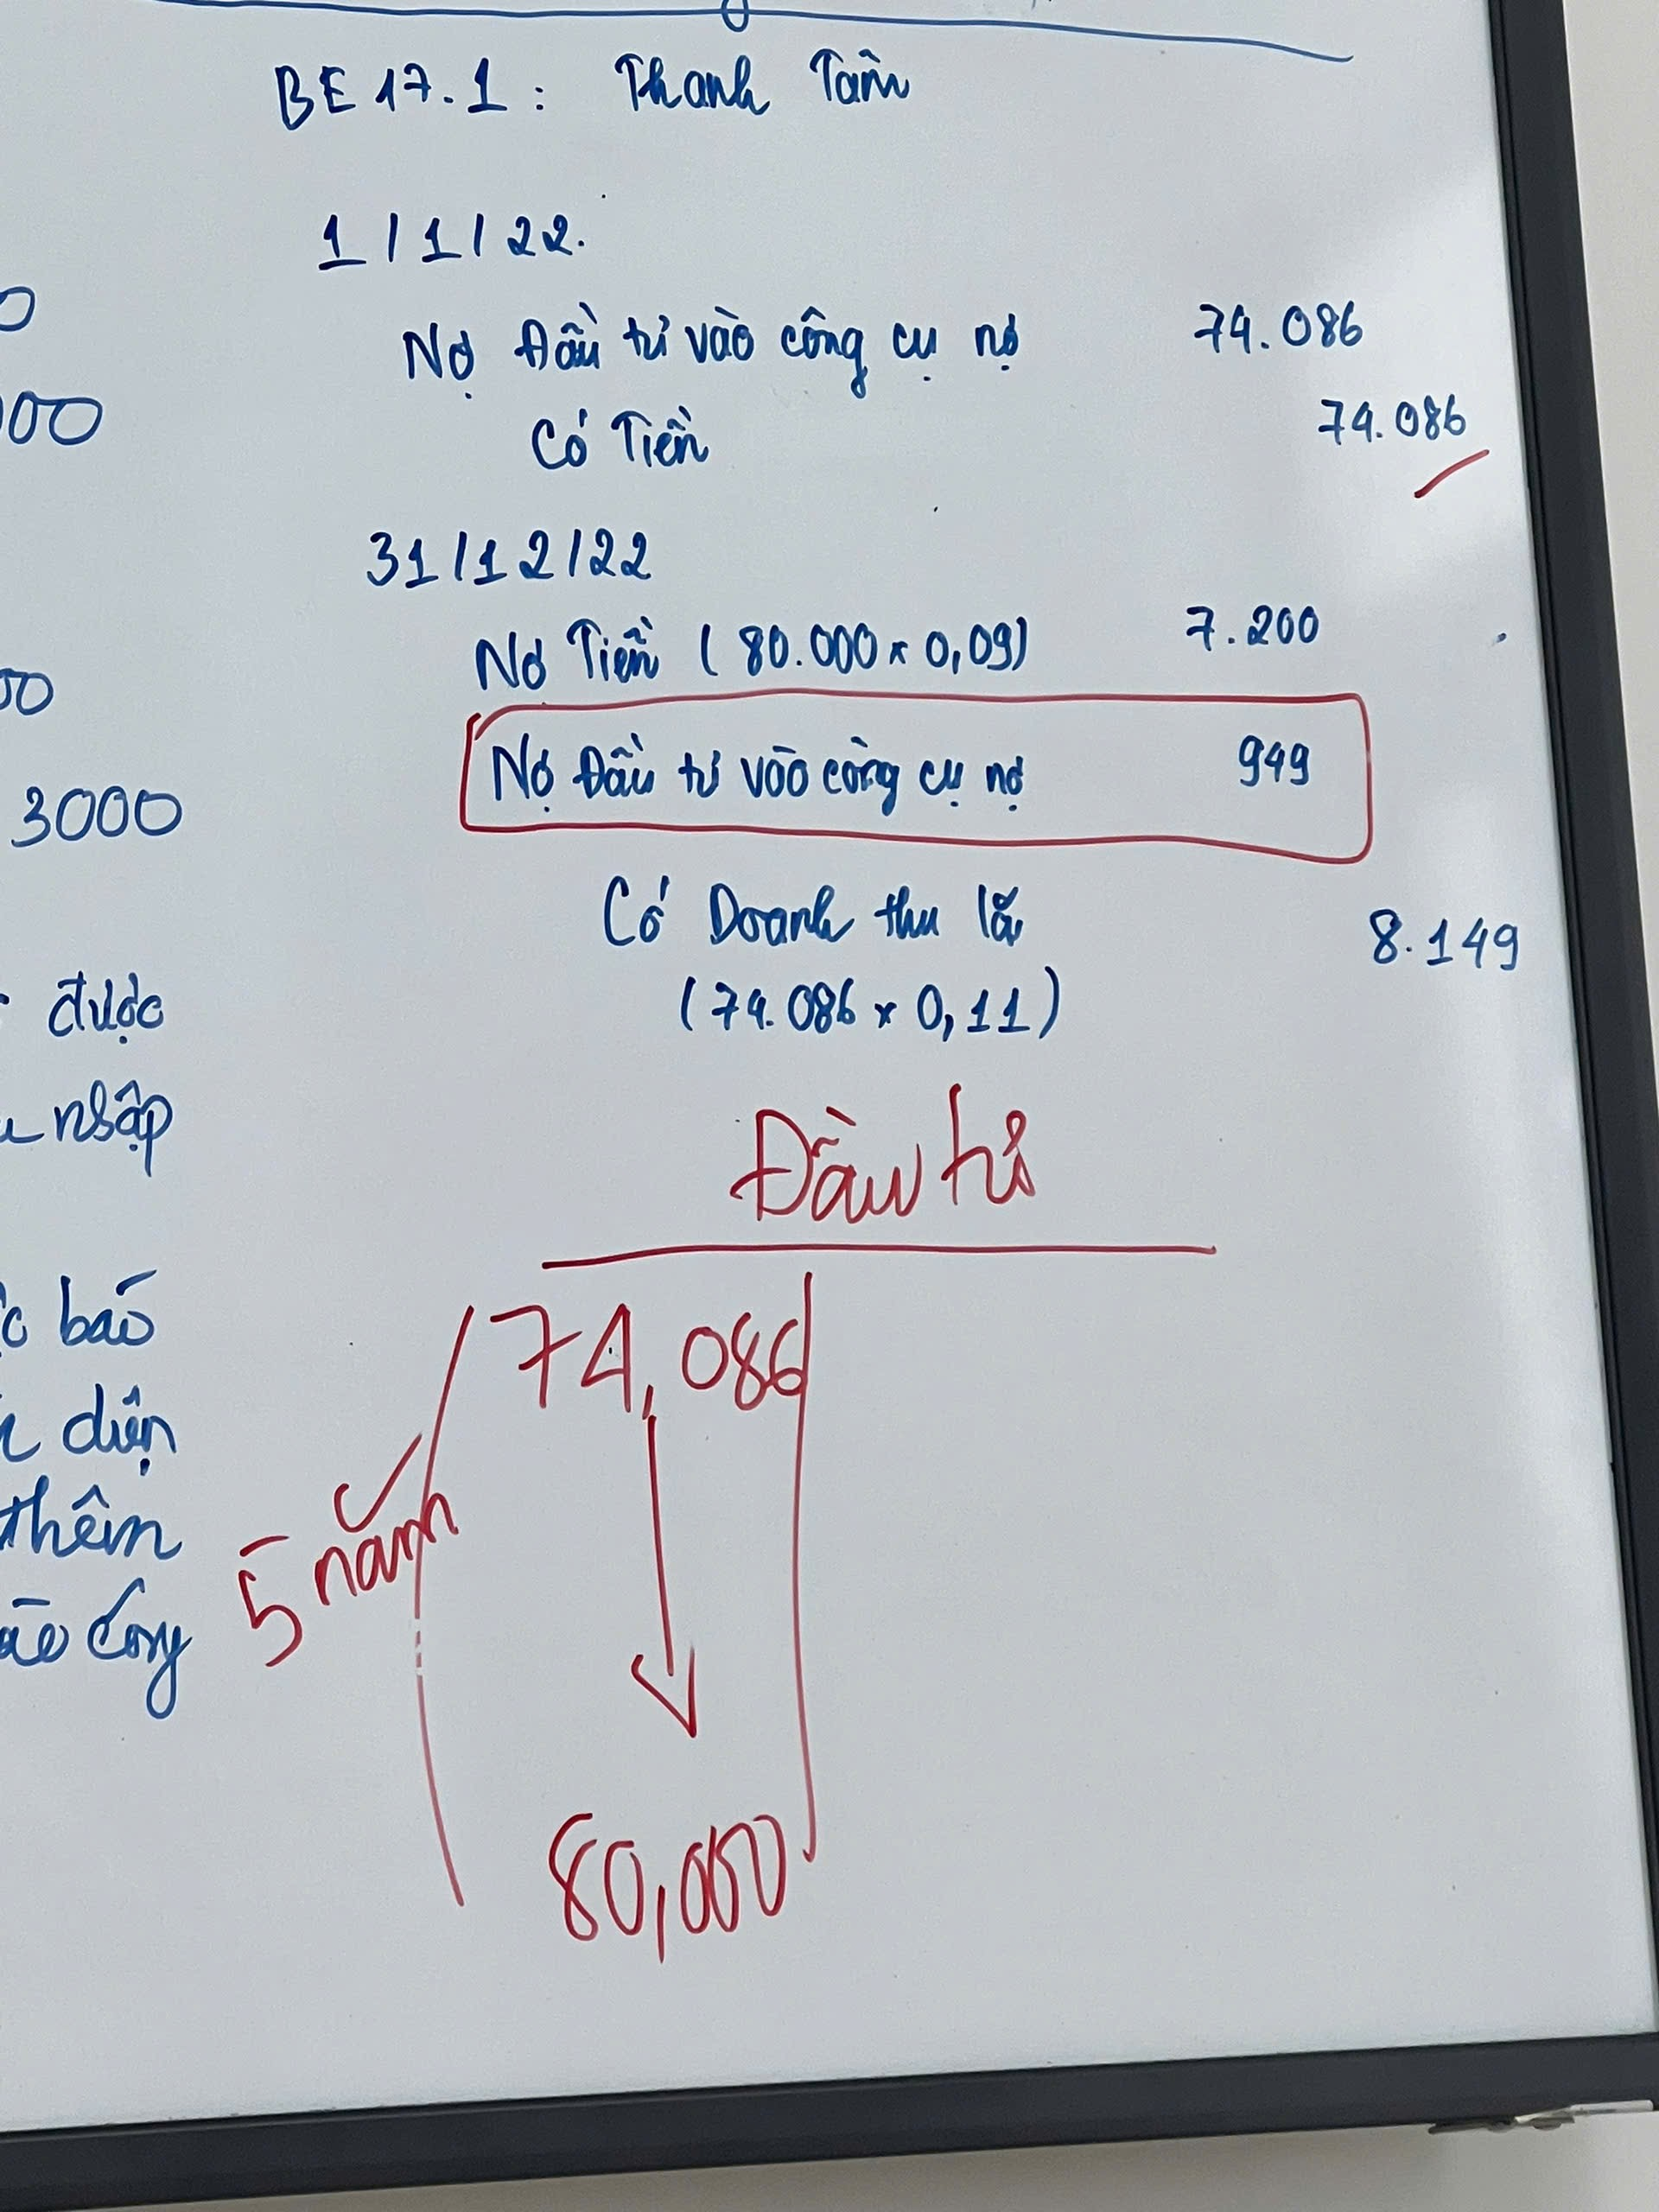 BE 17.1 : Thanh Tâm
1/1/22.
Nợ Đầu tư vào công cụ nợ 74.086
Có Tiền 74.086
31/12/22
Nợ Tiền (80.000 x 0,09) 7.200
Nợ Đầu tư vào công cụ nợ 949
Có Doanh thu lãi 8.149
(74.086 x 0,11)
Đầu tư
74,086
5 năm
80,000
00
3000
được
nhập
báo
diện
thêm